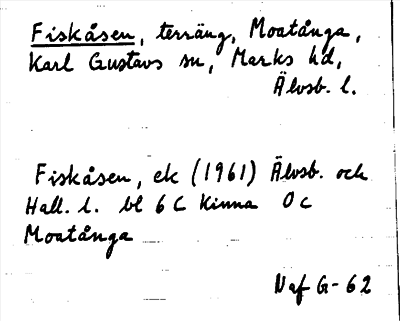 Fiskåsen, terräng, Moatånga,
Karl Gustavs sn, Marks hd,
Älvsb. l.
Fiskåsen, ek (1961) Älvsb. och
Hall. l. bl 6 C Kinna 0 c
Moatånga
Naf G-62